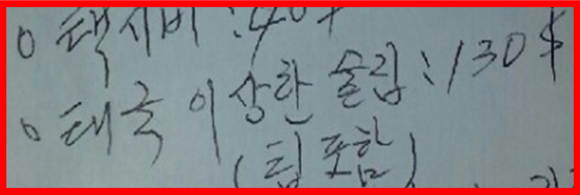 o 택시비 : 40$
o 태국 이상한 술집 : 130$
(팁 포함)